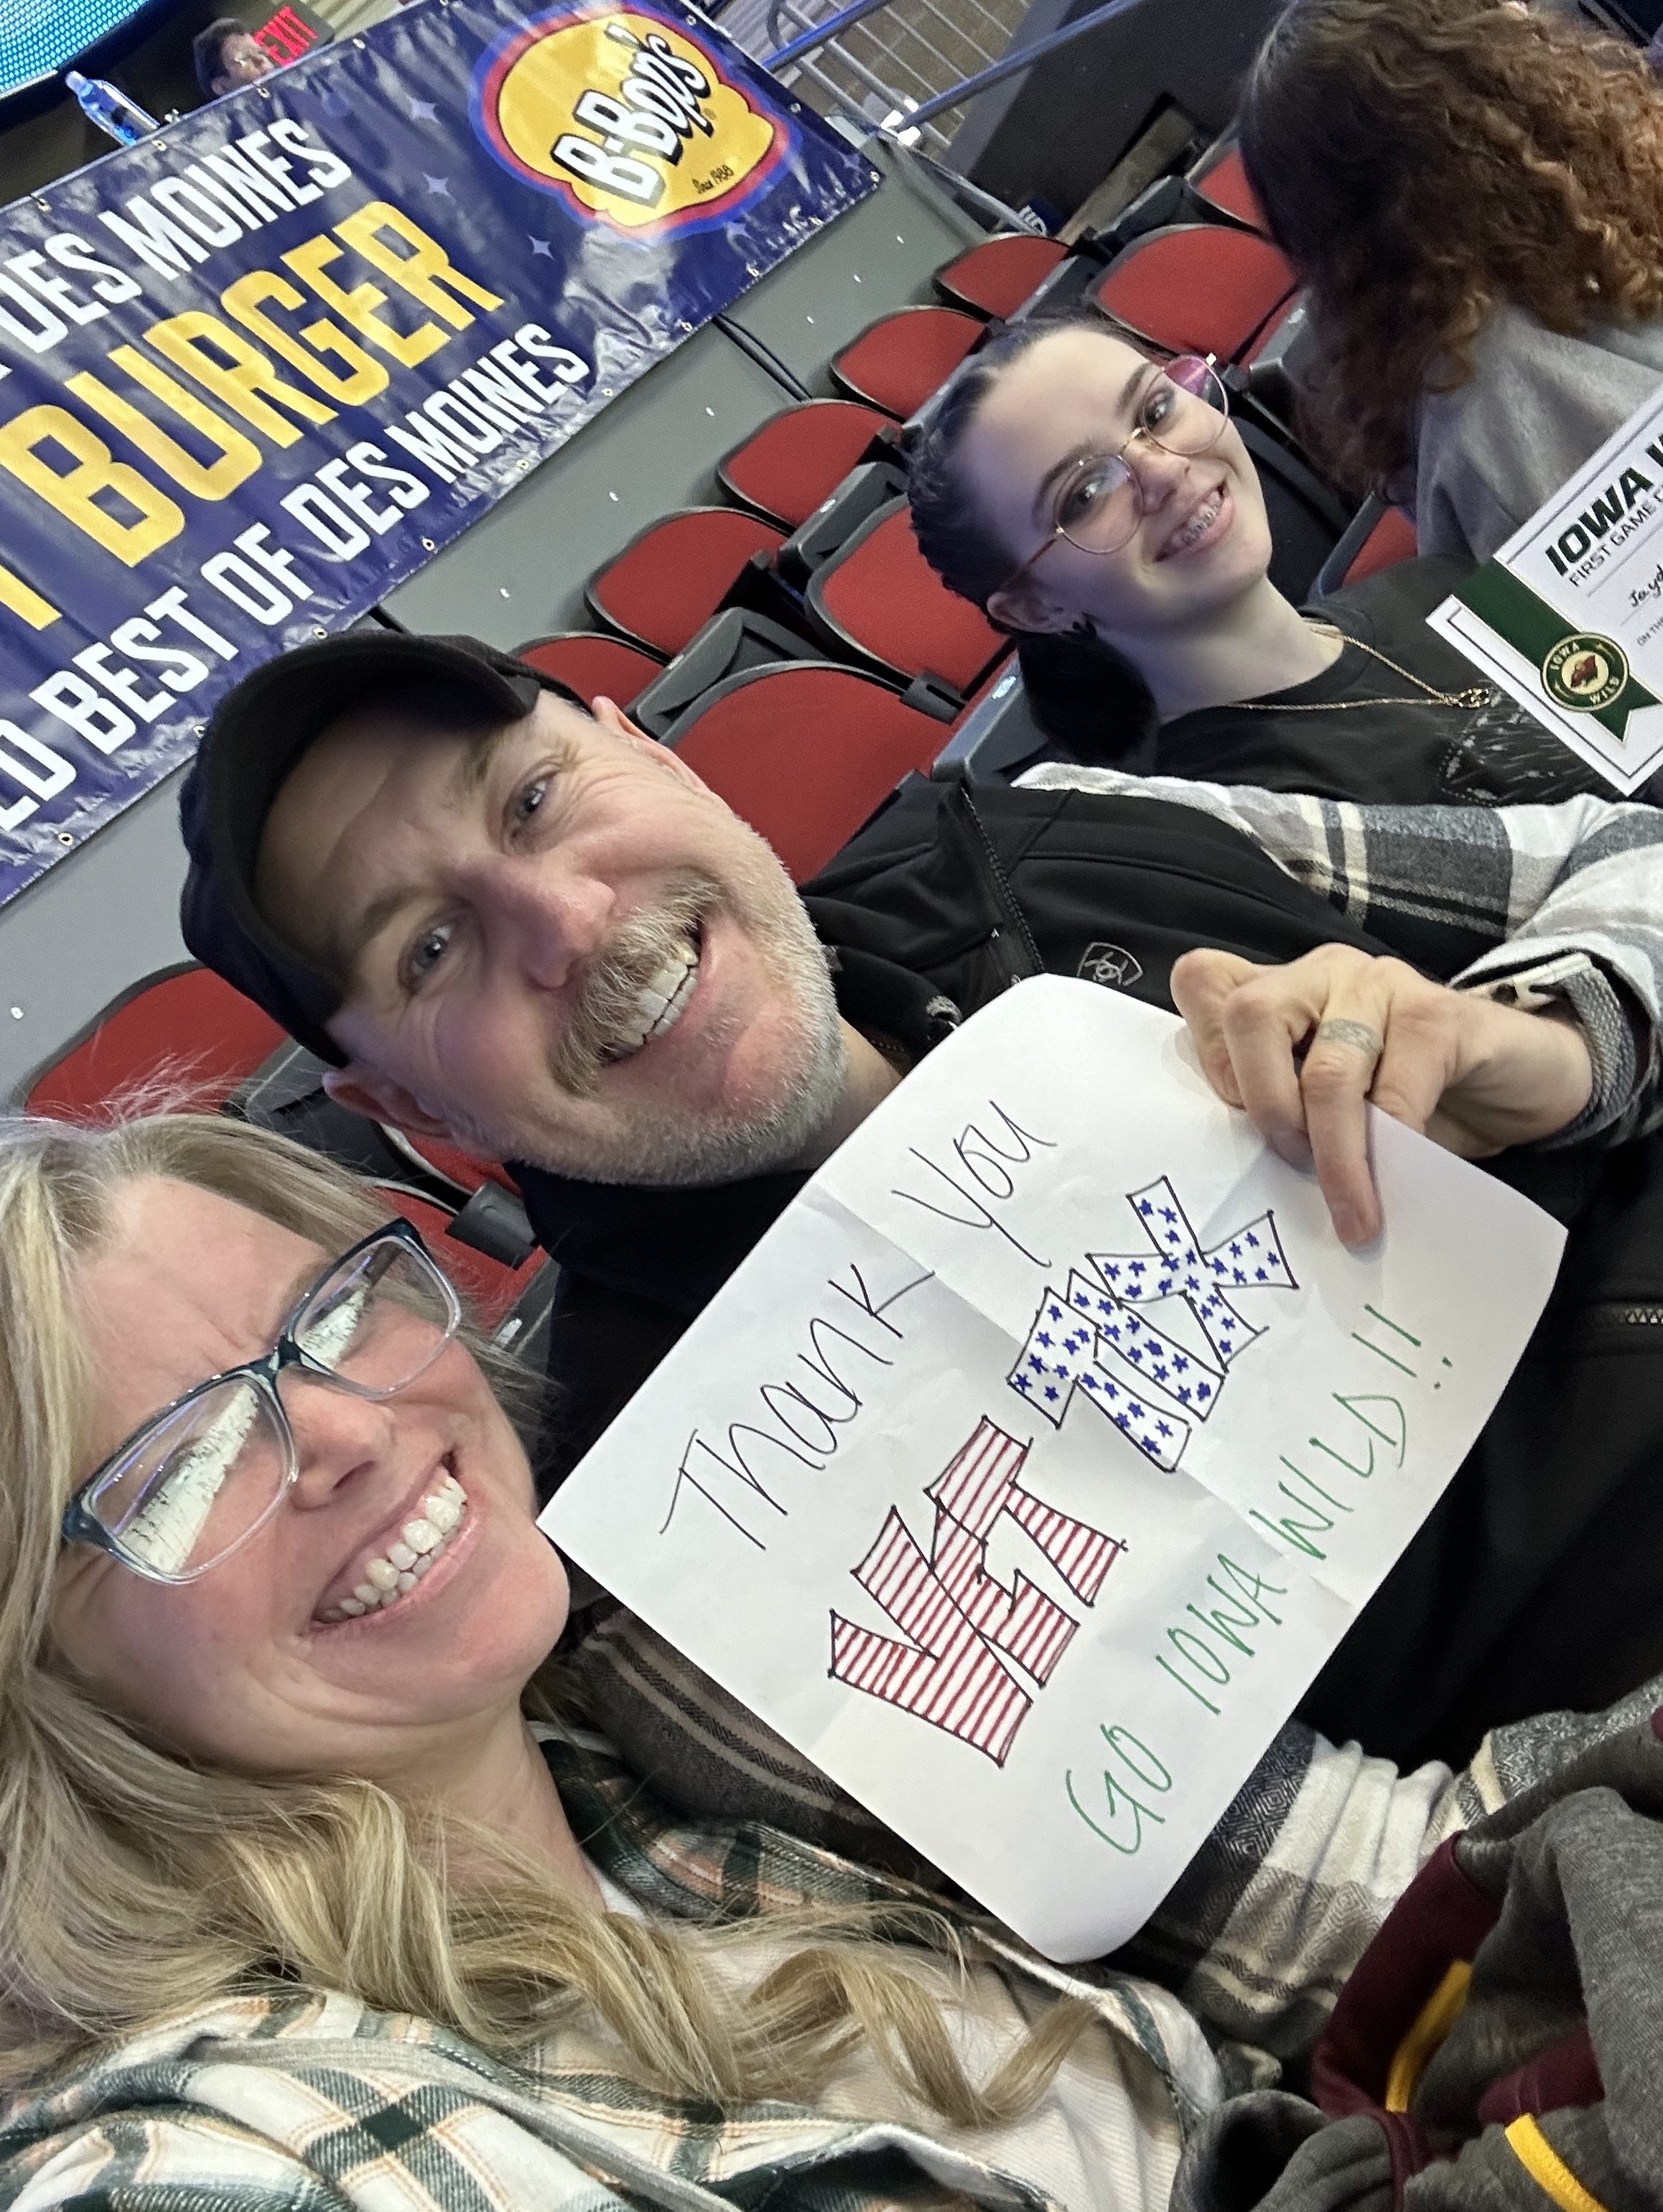 EXIT
B-Bop's
Since 1988
DES MOINES
BURGER
BEST OF DES MOINES
IOWA
FIRST GAME
Jayd
ON THI
IOWA
WILD
Thank You
VET TIX
GO IOWA WILD!!